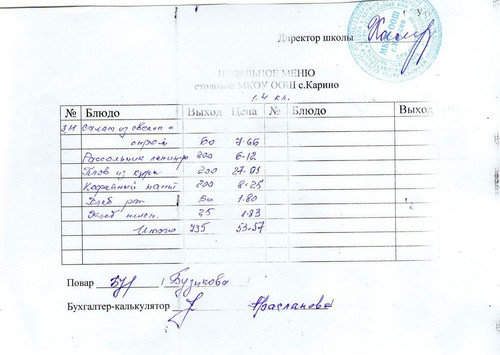 Директор школы
НЕДЕЛЬНОЕ МЕНЮ
столовой МКОУ ООШ с.Карино
1-4 кл.
№ Блюдо Выход Цена № Блюдо Выход
Салат из свеклы с
сыром 60 7-66
Рассольник ленингр 200 6-12
Плов из куры 200
Кофейный напит 200 8-25
Хлеб рж. 50 1.80
Хлеб пшен. 25 1.83
Итого 735 53-57
Повар / Бузикова
Бухгалтер-калькулятор